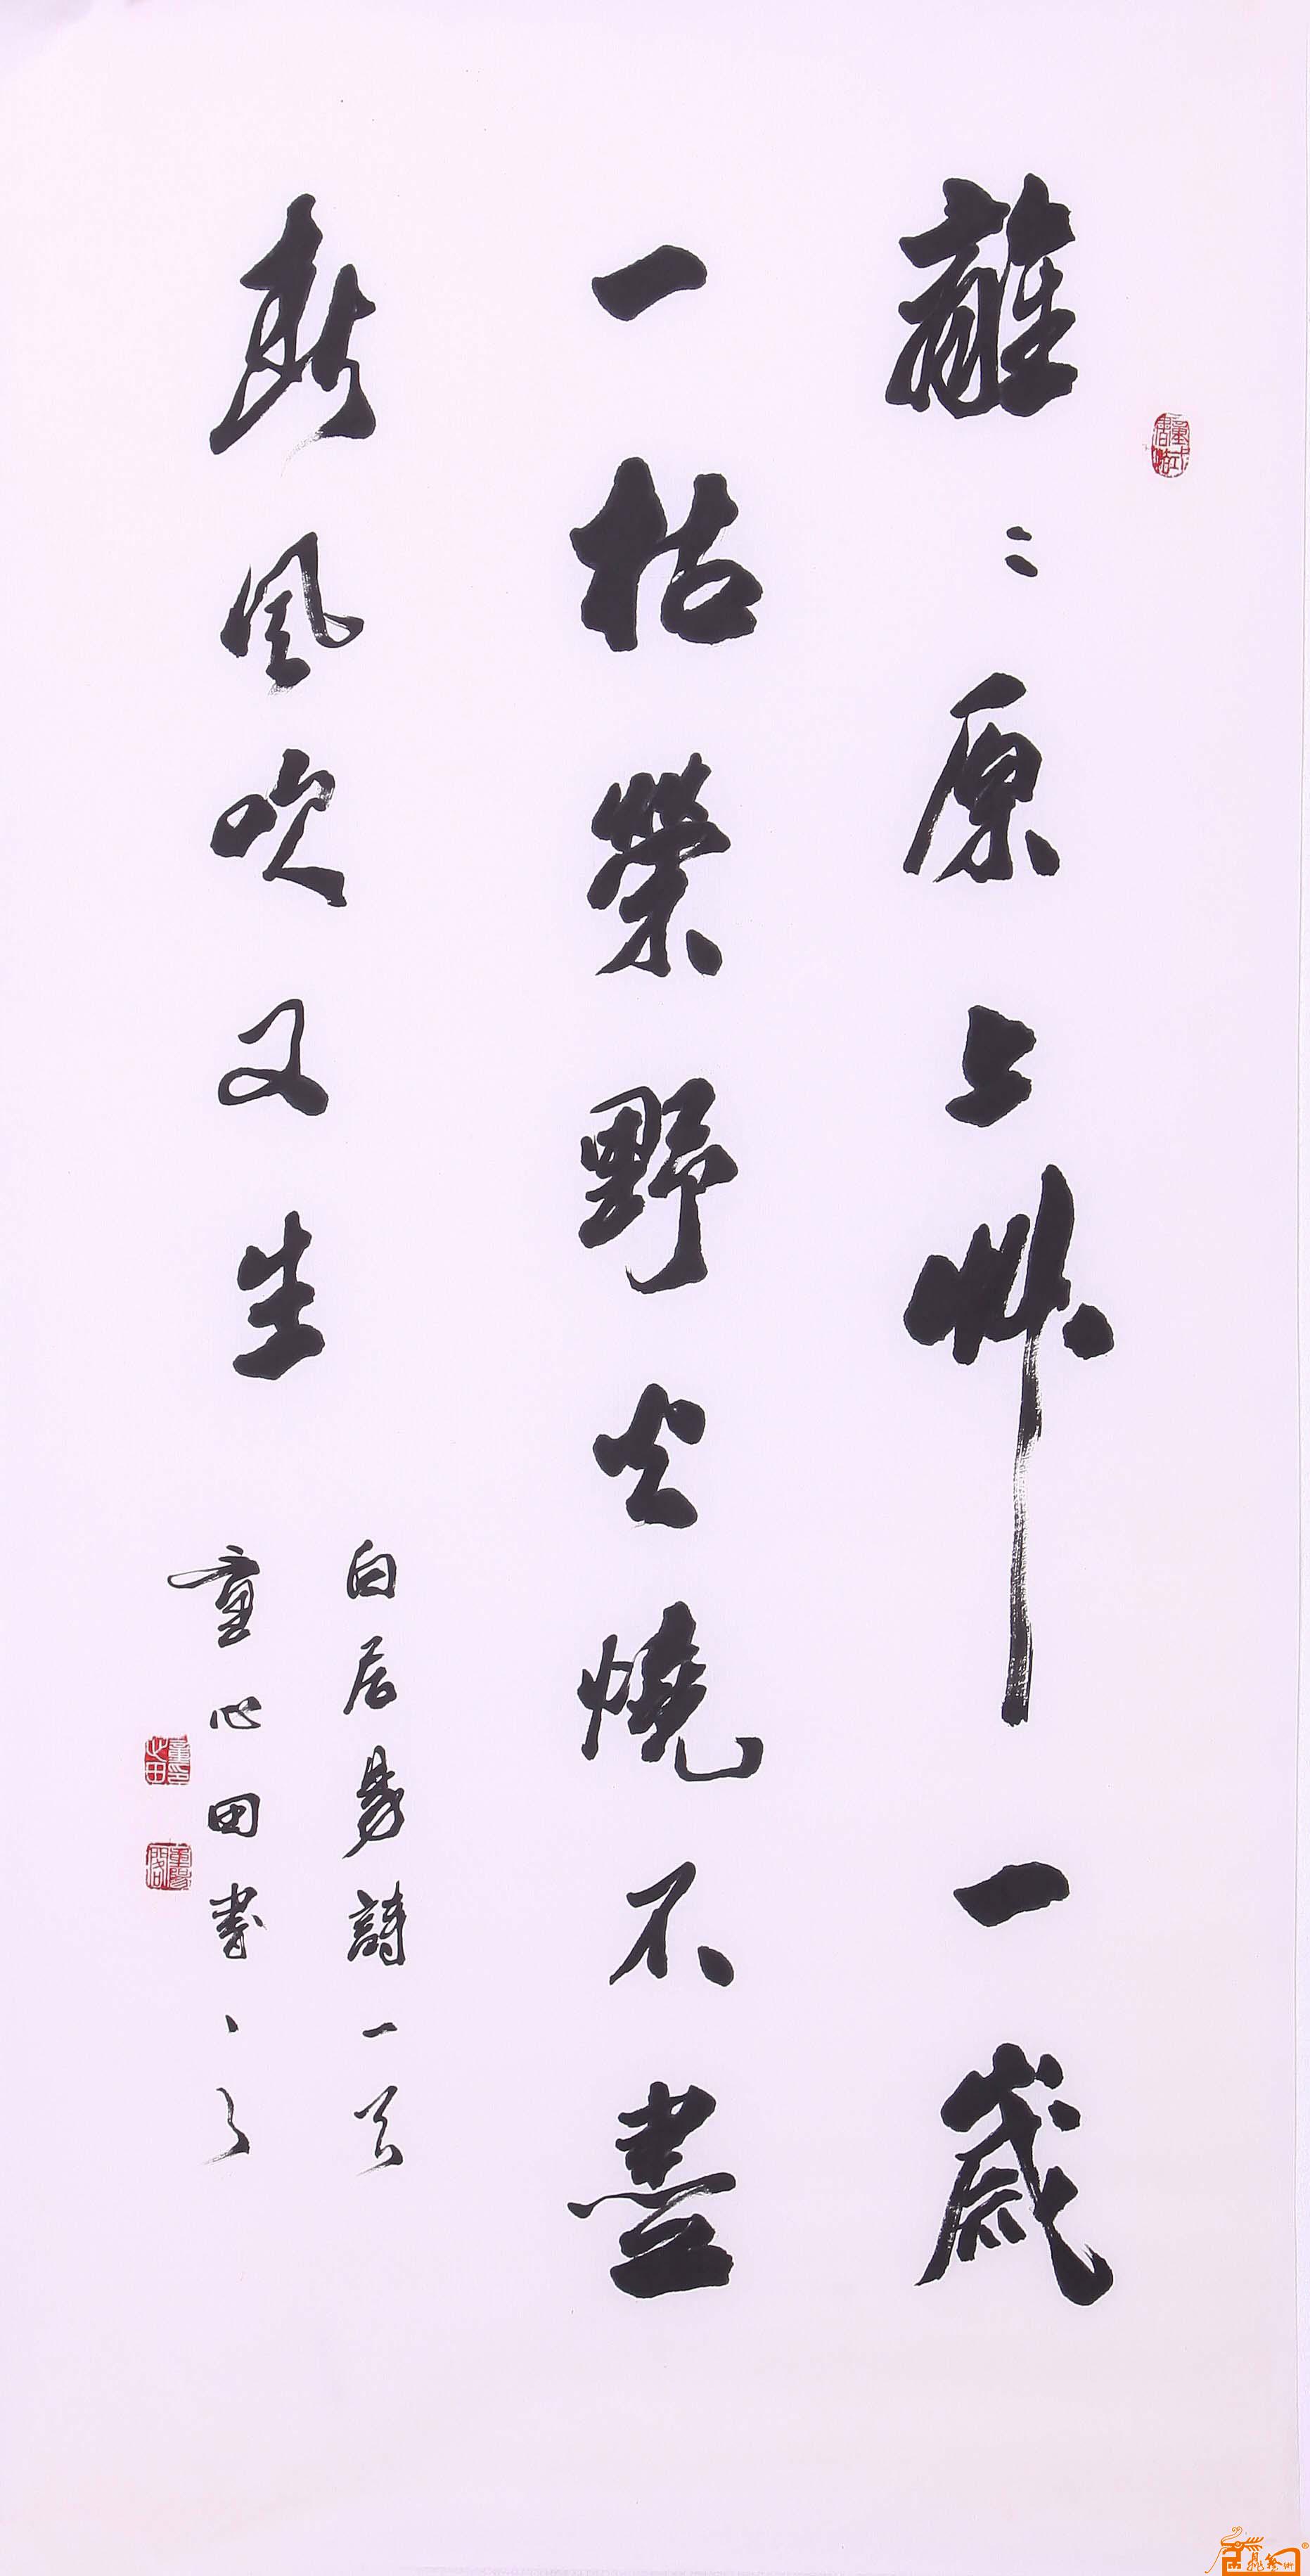 離〻原上艸一歲
一枯榮野火燒不盡
春風吹又生
白居易詩一首
童心田書之